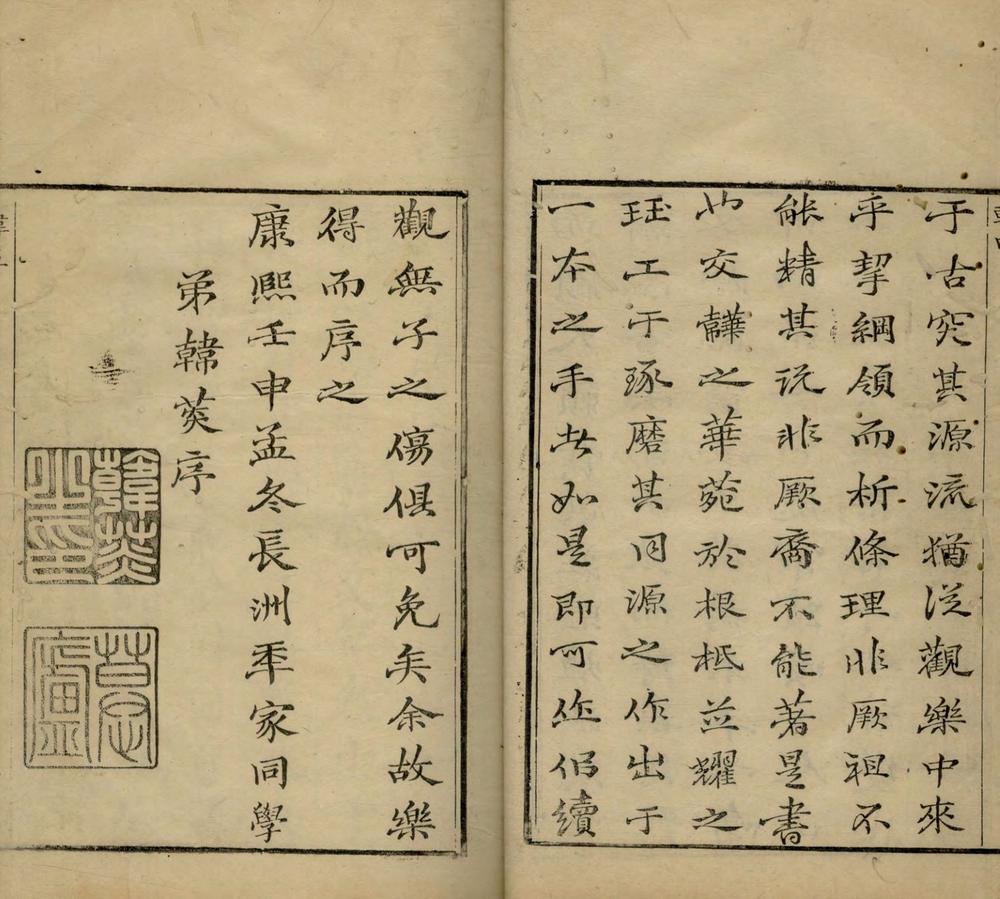 于古究其源流猶從觀樂中來
乎挈綱領而析條理非厥祖不
能精其説非厥裔不能著是書
以交韡之華菀於根柢並耀之
珏工于琢磨其同源之作出于
一本之手者如是即可作侣續
觀無子之傷俱可免矣余故樂
得而序之
康熙壬申孟冬長洲年家同學
弟韓菼序
韓菼之印
慕廬